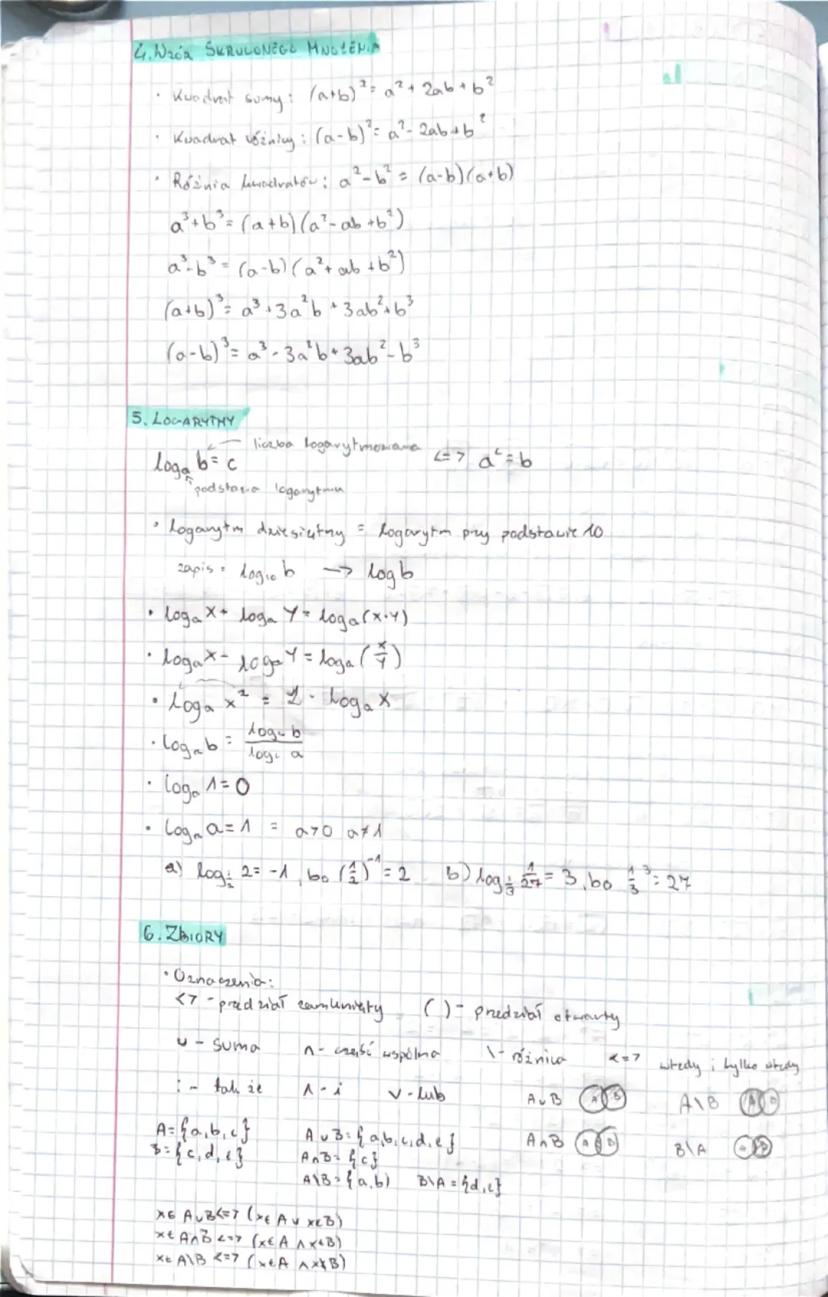 4. Wzór SKRUCONEGO MNOŻENIA
· Kwadrat sumy: (a+b)² = a² + 2ab + b²
· Kwadrat różnicy: (a-b)² = a² - 2ab + b²
· Różnia kwadratów: a² - b² = (a-b)(a+b)
a³+b³ = (a+b)(a²-ab+b²)
a³-b³ = (a-b)(a²+ab+b²)
(a+b)³ = a³+3a²b+3ab²+b³
(a-b)³ = a³-3a²b+3ab²-b³
5. LOGARYTMY
logₐ b = c liczba logarytmowana <=> aᶜ = b
podstawa logarytmu
· logarytm dziesiętny = logarytm przy podstawie 10
zapis = log₁₀ b -> log b
· logₐ x + logₐ y = logₐ (x·y)
· logₐ x - logₐ y = logₐ (x/y)
· logₐ x² = 2 · logₐ x
· logₐ b = log_c b / log_c a
· logₐ 1 = 0
· logₐ a = 1 = a>0 a≠1
a) log_½ 2 = -1, bo (1/2)⁻¹ = 2 b) log_⅓ 1/27 = 3, bo 1/3³ = 27
6. ZBIORY
· Oznaczenia:
<> - przedział zamknięty ( ) - przedział otwarty
∪ - suma ∩ - część wspólna \ - różnica <=> wtedy i tylko wtedy
: - tak że ∧ - i ∨ - lub A∪B A B A\B A B
A={a,b,c} A∪B={a,b,c,d,e} A∩B A B B\A A B
B={c,d,e} A∩B={c}
A\B={a,b} B\A={d,e}
x∈A∪B <=> (x∈A ∨ x∈B)
x∈A∩B <=> (x∈A ∧ x∈B)
x∈A\B <=> (x∈A ∧ x∉B)